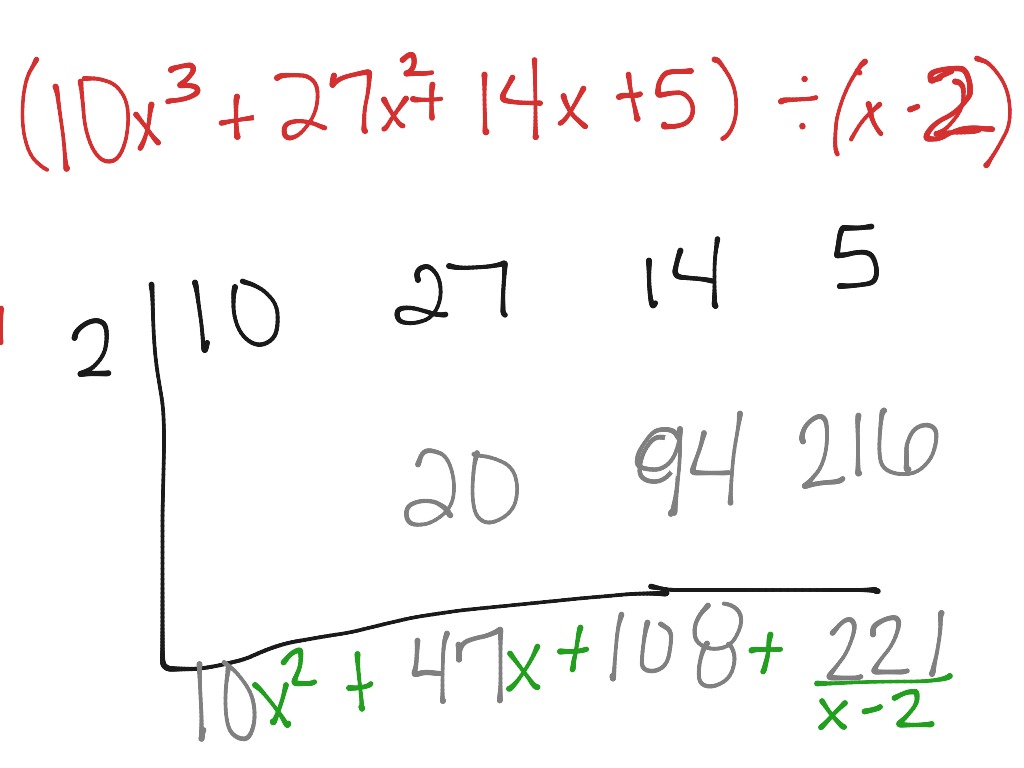 (10x³ + 27x² + 14x + 5) ÷ (x - 2)
2 10 27 14 5
20 94 216
10x² + 47x + 108 + 221
x - 2